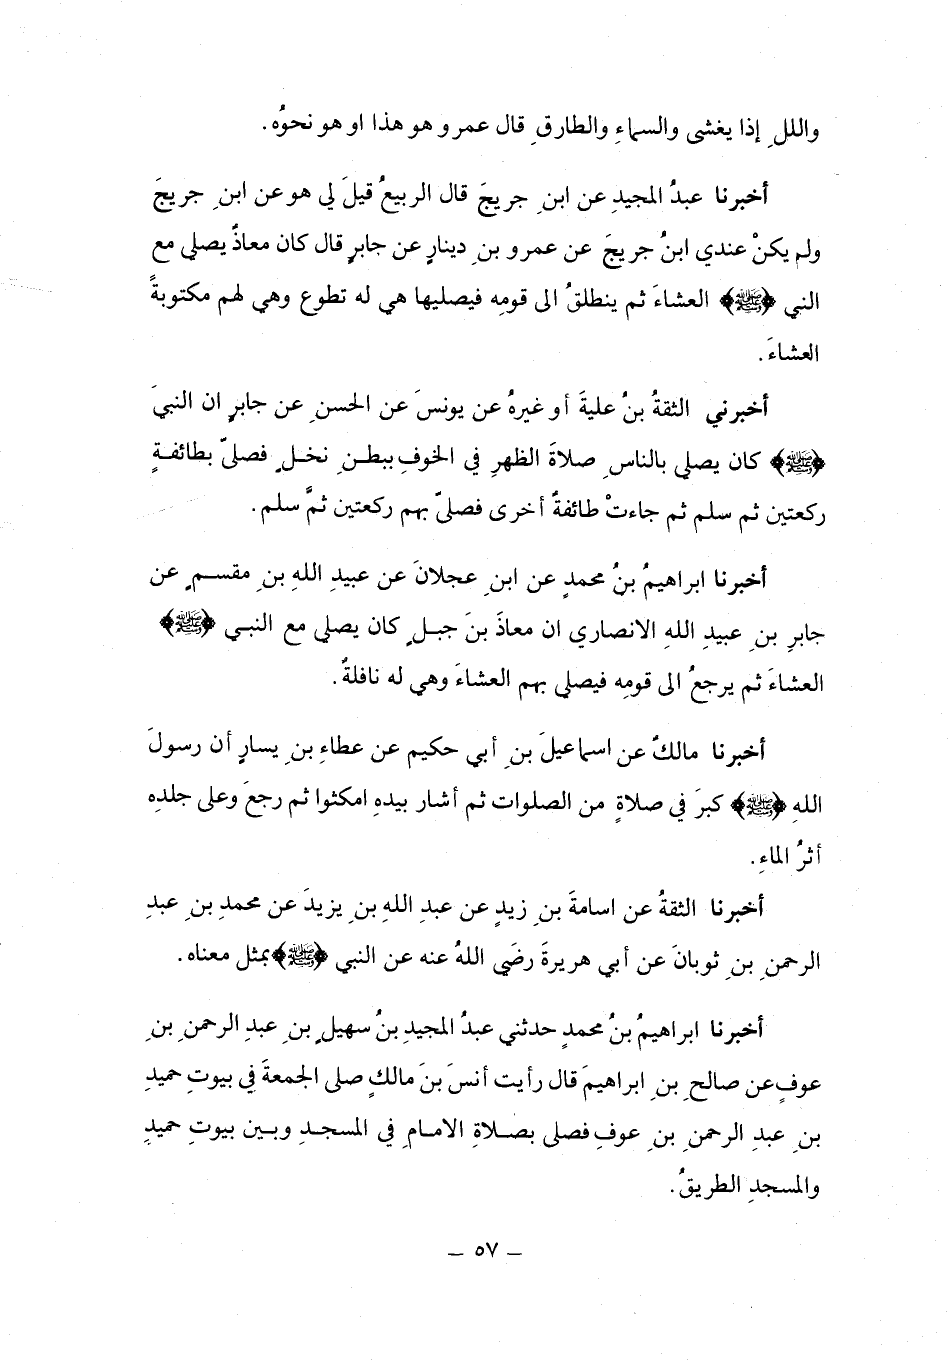 واللل إذا يغشى والسماءِ والطارقِ قال عمرو هو هذا او هو نحوُه.
أخبرنا عبدُ المجيدِ عن ابنِ جريجَ قال الربيعُ قيلَ لي هو عن ابنِ جريجَ
ولم يكنْ عندي ابنُ جريجَ عن عمرو بنِ دينارٍ عن جابرٍ قال كان معاذٌ يصلي مع
النبي ﴿ﷺ﴾ العشاءَ ثم ينطلقُ الى قومِه فيصليها هي له تطوع وهي لهم مكتوبةً
العشاءَ.
أخبرني الثقةُ بنُ عليةَ أو غيرهُ عن يونسَ عن الحسنِ عن جابرٍ ان النبيَ
﴿ﷺ﴾ كان يصلي بالناسِ صلاةَ الظهرِ في الخوفِ ببطنِ نخلٍ فصلىّ بطائفةٍ
ركعتين ثم سلم ثم جاءتْ طائفةٌ أخرى فصلىّ بهم ركعتين ثمَّ سلم.
أخبرنا ابراهيمُ بنُ محمدٍ عن ابنِ عجلانَ عن عبيدِ اللهِ بنِ مقسمٍ عن
جابرِ بنِ عبيدِ اللهِ الانصاري ان معاذَ بنَ جبلٍ كان يصلي مع النبي ﴿ﷺ﴾
العشاءَ ثم يرجعُ الى قومِه فيصلي بهم العشاءَ وهي له نافلةٌ.
أخبرنا مالكٌ عن اسماعيلَ بنِ أبي حكيم عن عطاءِ بنِ يسارٍ أن رسولَ
اللهِ ﴿ﷺ﴾ كبرَ في صلاةٍ من الصلوات ثم أشار بيدهِ امكثوا ثم رجعَ وعلى جلدِه
أثرُ الماءِ.
أخبرنا الثقةُ عن اسامةَ بنِ زيدٍ عن عبدِ اللهِ بنِ يزيدَ عن محمدِ بنِ عبدِ
الرحمنِ بنِ ثوبانَ عن أبي هريرةَ رضَي اللهُ عنه عن النبي ﴿ﷺ﴾ بمثل معناه.
أخبرنا ابراهيمُ بنُ محمدٍ حدثني عبدُ المجيدِ بنُ سهيلٍ بنِ عبدِ الرحمنِ بنِ
عوفٍ عن صالحِ بنِ ابراهيمَ قال رأيت أنسَ بنَ مالكٍ صلى الجمعةَ في بيوتِ حميدِ
بنِ عبدِ الرحمنِ بنِ عوفِ فصلى بصلاةِ الامامِ في المسجدِ وبين بيوتِ حميدٍ
والمسجدِ الطريقُ.
– ٥٧ –